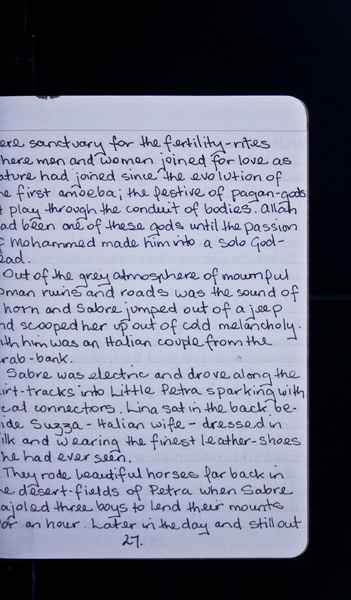 ere sanctuary for the fertility-rites
here men and women joined for love as
ature had joined since the evolution of
e first amoeba; the festive of pagan-gods
t play through the conduit of bodies. Allah
ad been one of these gods until the passion
f Mohammed made him into a solo God-
ead.
Out of the grey atmosphere of mournful
oman ruins and roads was the sound of
horn and Sabre jumped out of a jeep
nd scooped her up out of cold melancholy.
ith him was an Italian couple from the
rab-bank.
Sabre was electric and drove along the
irt-tracks into Little Petra sparking with
cal connectors. Lina sat in the back be-
ide Suzza - Italian wife - dressed in
ilk and wearing the finest leather-shoes
he had ever seen.
They rode beautiful horses far back in
e desert-fields of Petra when Sabre
ajoled three boys to lend their mounts
or an hour. Later in the day and still out
27.